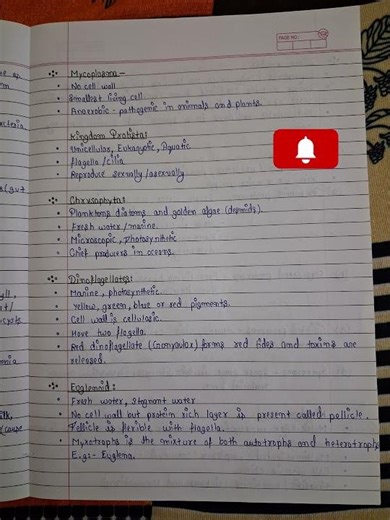 PAGE NO.:
❖ Mycoplasma –
• No cell wall
• Smallest living cell
• Anaerobic - pathogenic in animals and plants.
Kingdom Protista:
• Unicellular, Eukaryotic, Aquatic
• flagella / cilia
• Reproduce sexually / asexually
❖ Chrysophyta:
• Planktons diatoms and golden algae (desmids).
• Fresh water / marine.
• Microscopic, photosynthetic
• Chief producers in oceans.
❖ Dinoflagellates:
• Marine, photosynthetic
• Yellow, green, blue or red pigments.
• Cell wall is cellulosic.
• Have two flagella.
• Red dinoflagellate (Gonyaulax) forms red tides and toxins are
released.
Euglenoid:
• Fresh water, Stagnant water
• No cell wall but protein rich layer is present called pellicle.
• Pellicle is flexible with flagella.
• Myxotrophs is the mixture of both autotrophs and heterotrophs
E.g:- Euglena.